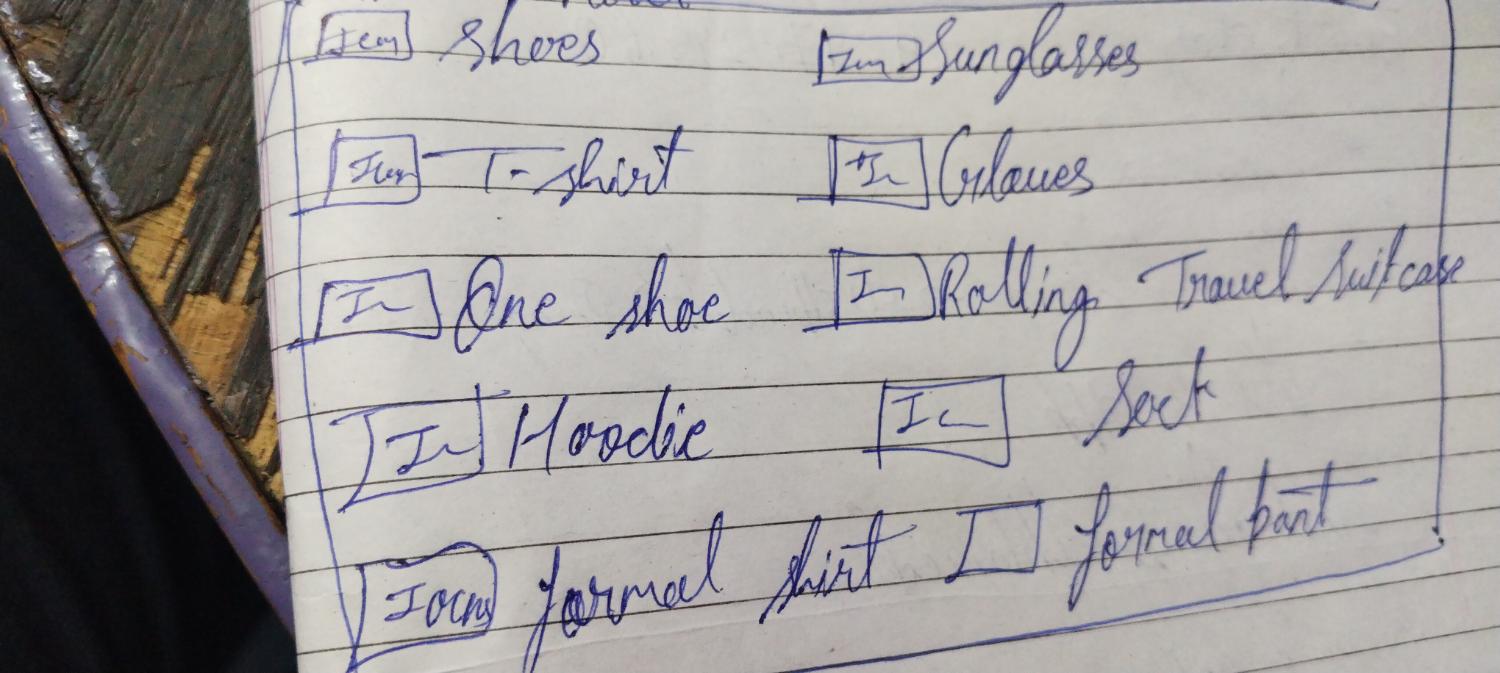 Icon Shoes Icon Sunglasses
Icon T-shirt In Gloves
In One shoe In Rolling Travel suitcase
In Hoodie In Sock
Iocn formal shirt formal pant